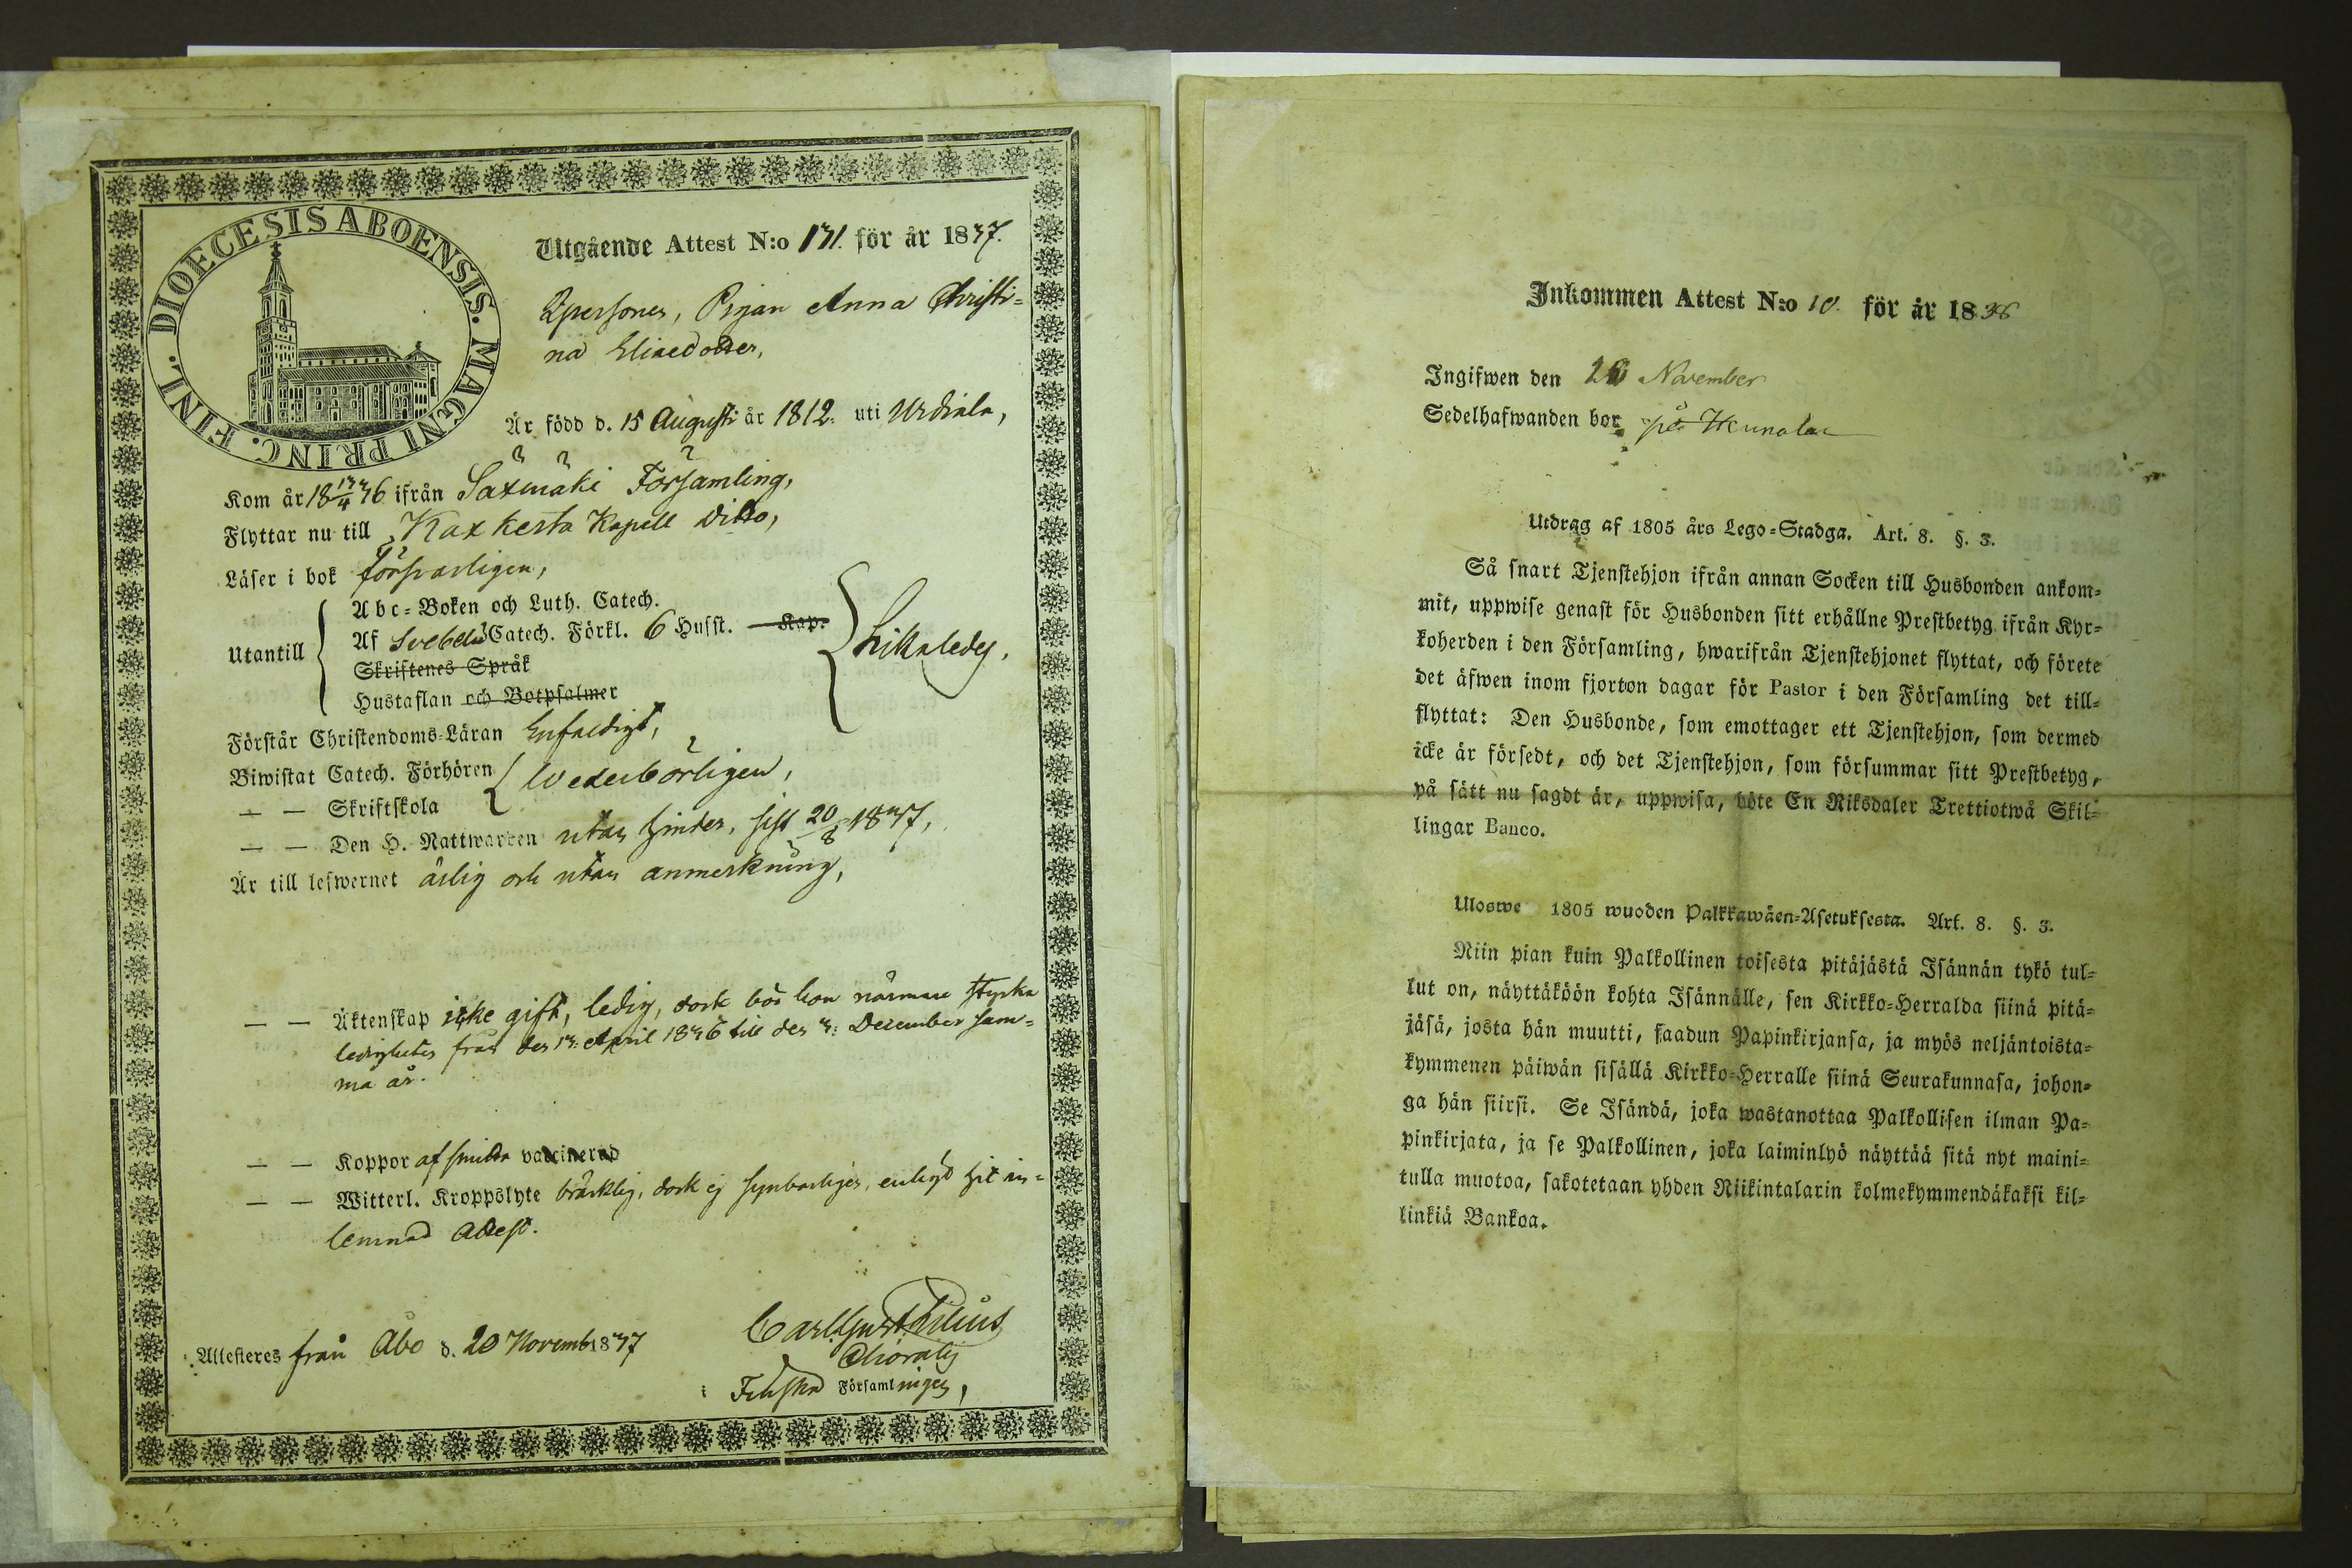 DIOECESIS ABOENSIS. MAGNI PRINC. FINL.
Utgående Attest N:o 131. för år 1837.
Qpersonen, Pigan Anna Christi=
na Elixedotter,
Är född d. 15 Augusti år 1812. uti Urdiala,
Kom år 18 13/4 36 ifrån Säxmäki Församling,
Flyttar nu till Kaxkerta Kapell ditto,
Läser i bok försvarligen,
Utantill
Abc=Boken och Luth. Catech.
Af Svebelii Catech. Förkl. 6 Husst. Kap.
Skriftenes Språk
Hustaflan och Botpsalmer
likaledes,
Förstår Christendoms=Läran Enfaldigt,
Biwistat Catech. Förhören
— — Skriftskola
wederbörligen,
— — Den H. Nattwarden utan hinder, sist 20/8 1837,
Är till lefwernet ärlig och utan anmerkning,
— — Äktenskap icke gift, ledig, dock bör hon närmare styrka
ledigheten från den 13: April 1836 till den 3: December sam=
ma år.
— — Koppor af smitta vaccinerad
— — Witterl. Kroppslyte bräcklig, dock ej synbarligen, enligt hit in=
lemnad Attest.
Attesteres från Åbo d. 20 Novemb 1837
Carl Gust
i Finska Församlingen,
Inkommen Attest N:o 10. för år 1838
Ingifwen den November
Sedelhafwanden bor på
Utdrag af 1805 års Lego=Stadga. Art. 8. §. 3.
Så snart Tjenstehjon ifrån annan Socken till Husbonden ankom=
mit, uppwise genast för Husbonden sitt erhållne Prestbetyg ifrån Kyr=
koherden i den Församling, hwarifrån Tjenstehjonet flyttat, och förete
det äfwen inom fjorton dagar för Pastor i den Församling det till=
flyttat: Den Husbonde, som emottager ett Tjenstehjon, som dermed
icke är försedt, och det Tjenstehjon, som försummar sitt Prestbetyg,
på sätt nu sagdt är, uppwisa, böte En Riksdaler Trettiotwå Skil=
lingar Banco.
Uloswe 1805 wuoden Palkkawäen=Asetuksesta. Art. 8. §. 3.
Niin pian kuin Palkollinen toisesta pitäjästä Isännän tykö tul=
lut on, näyttäköön kohta Isännälle, sen Kirkko=Herralda siinä pitä=
jäsä, josta hän muutti, saadun Papinkirjansa, ja myös neljäntoista=
kymmenen päiwän sisällä Kirkko=Herralle siinä Seurakunnasa, johon=
ga hän siirsi. Se Isändä, joka wastanottaa Palkollisen ilman Pa=
pinkirjata, ja se Palkollinen, joka laiminlyö näyttää sitä nyt maini=
tulla muotoa, sakotetaan yhden Riikintalarin kolmekymmendäkaksi kil=
linkiä Bankoa.